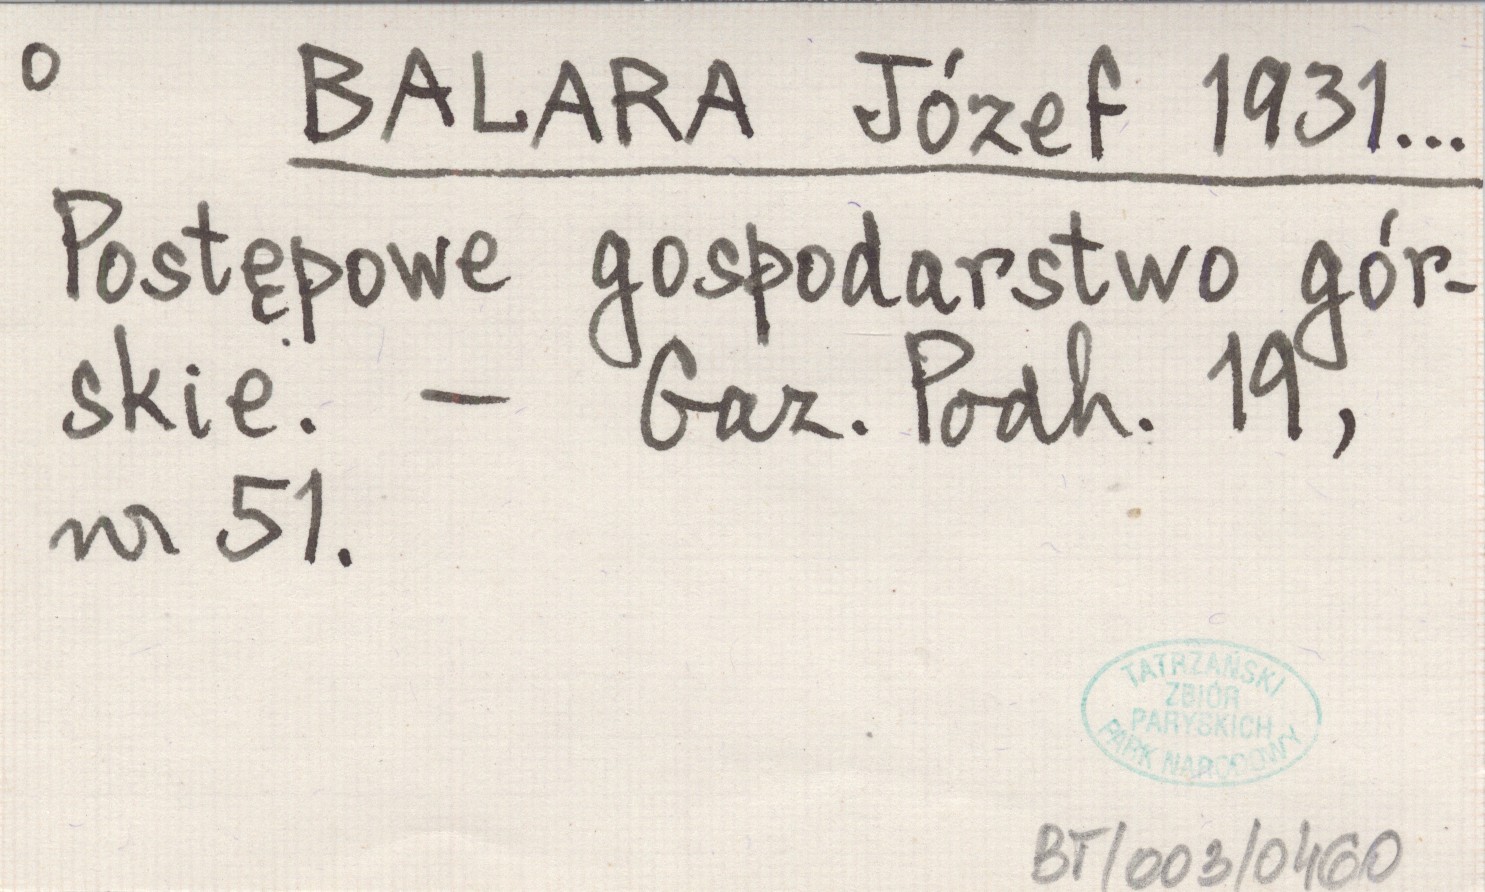 o BALARA Józef 1931...
Postępowe gospodarstwo gór-
skie. – Gaz. Podh. 19,
nr 51.
TATRZAŃSKI
ZBIÓR
PARYSKICH
PARK NARODOWY
BT/003/0460